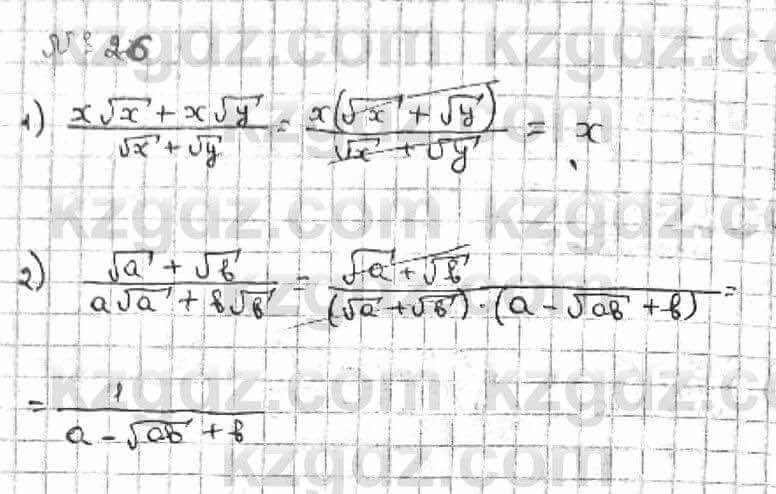 № 26
1) (x√x + x√y)/(√x + √y) = (x(√x + √y))/(√x + √y) = x
2) (√a + √b)/(a√a + b√b) = (√a + √b)/((√a + √b)·(a - √ab + b)) =
= 1/(a - √ab + b)
kzgdz.com kzgdz.com
kzgdz.com
kzgdz.com kzgdz.com
kzgdz.com
kzgdz.com kzgdz.com
kzgdz.com